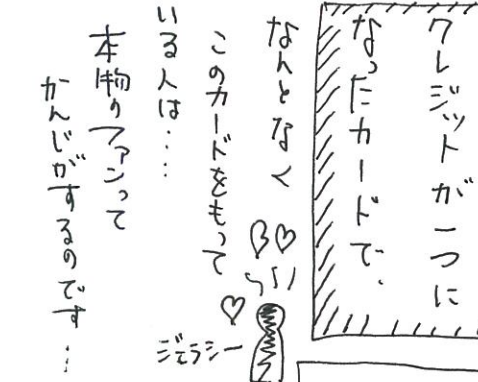 クレジットが一つに
なったカードで、
なんとなく
このカードをもって
いる人は・・・・
本物のファンって
かんじがするのです…
ジェラシー